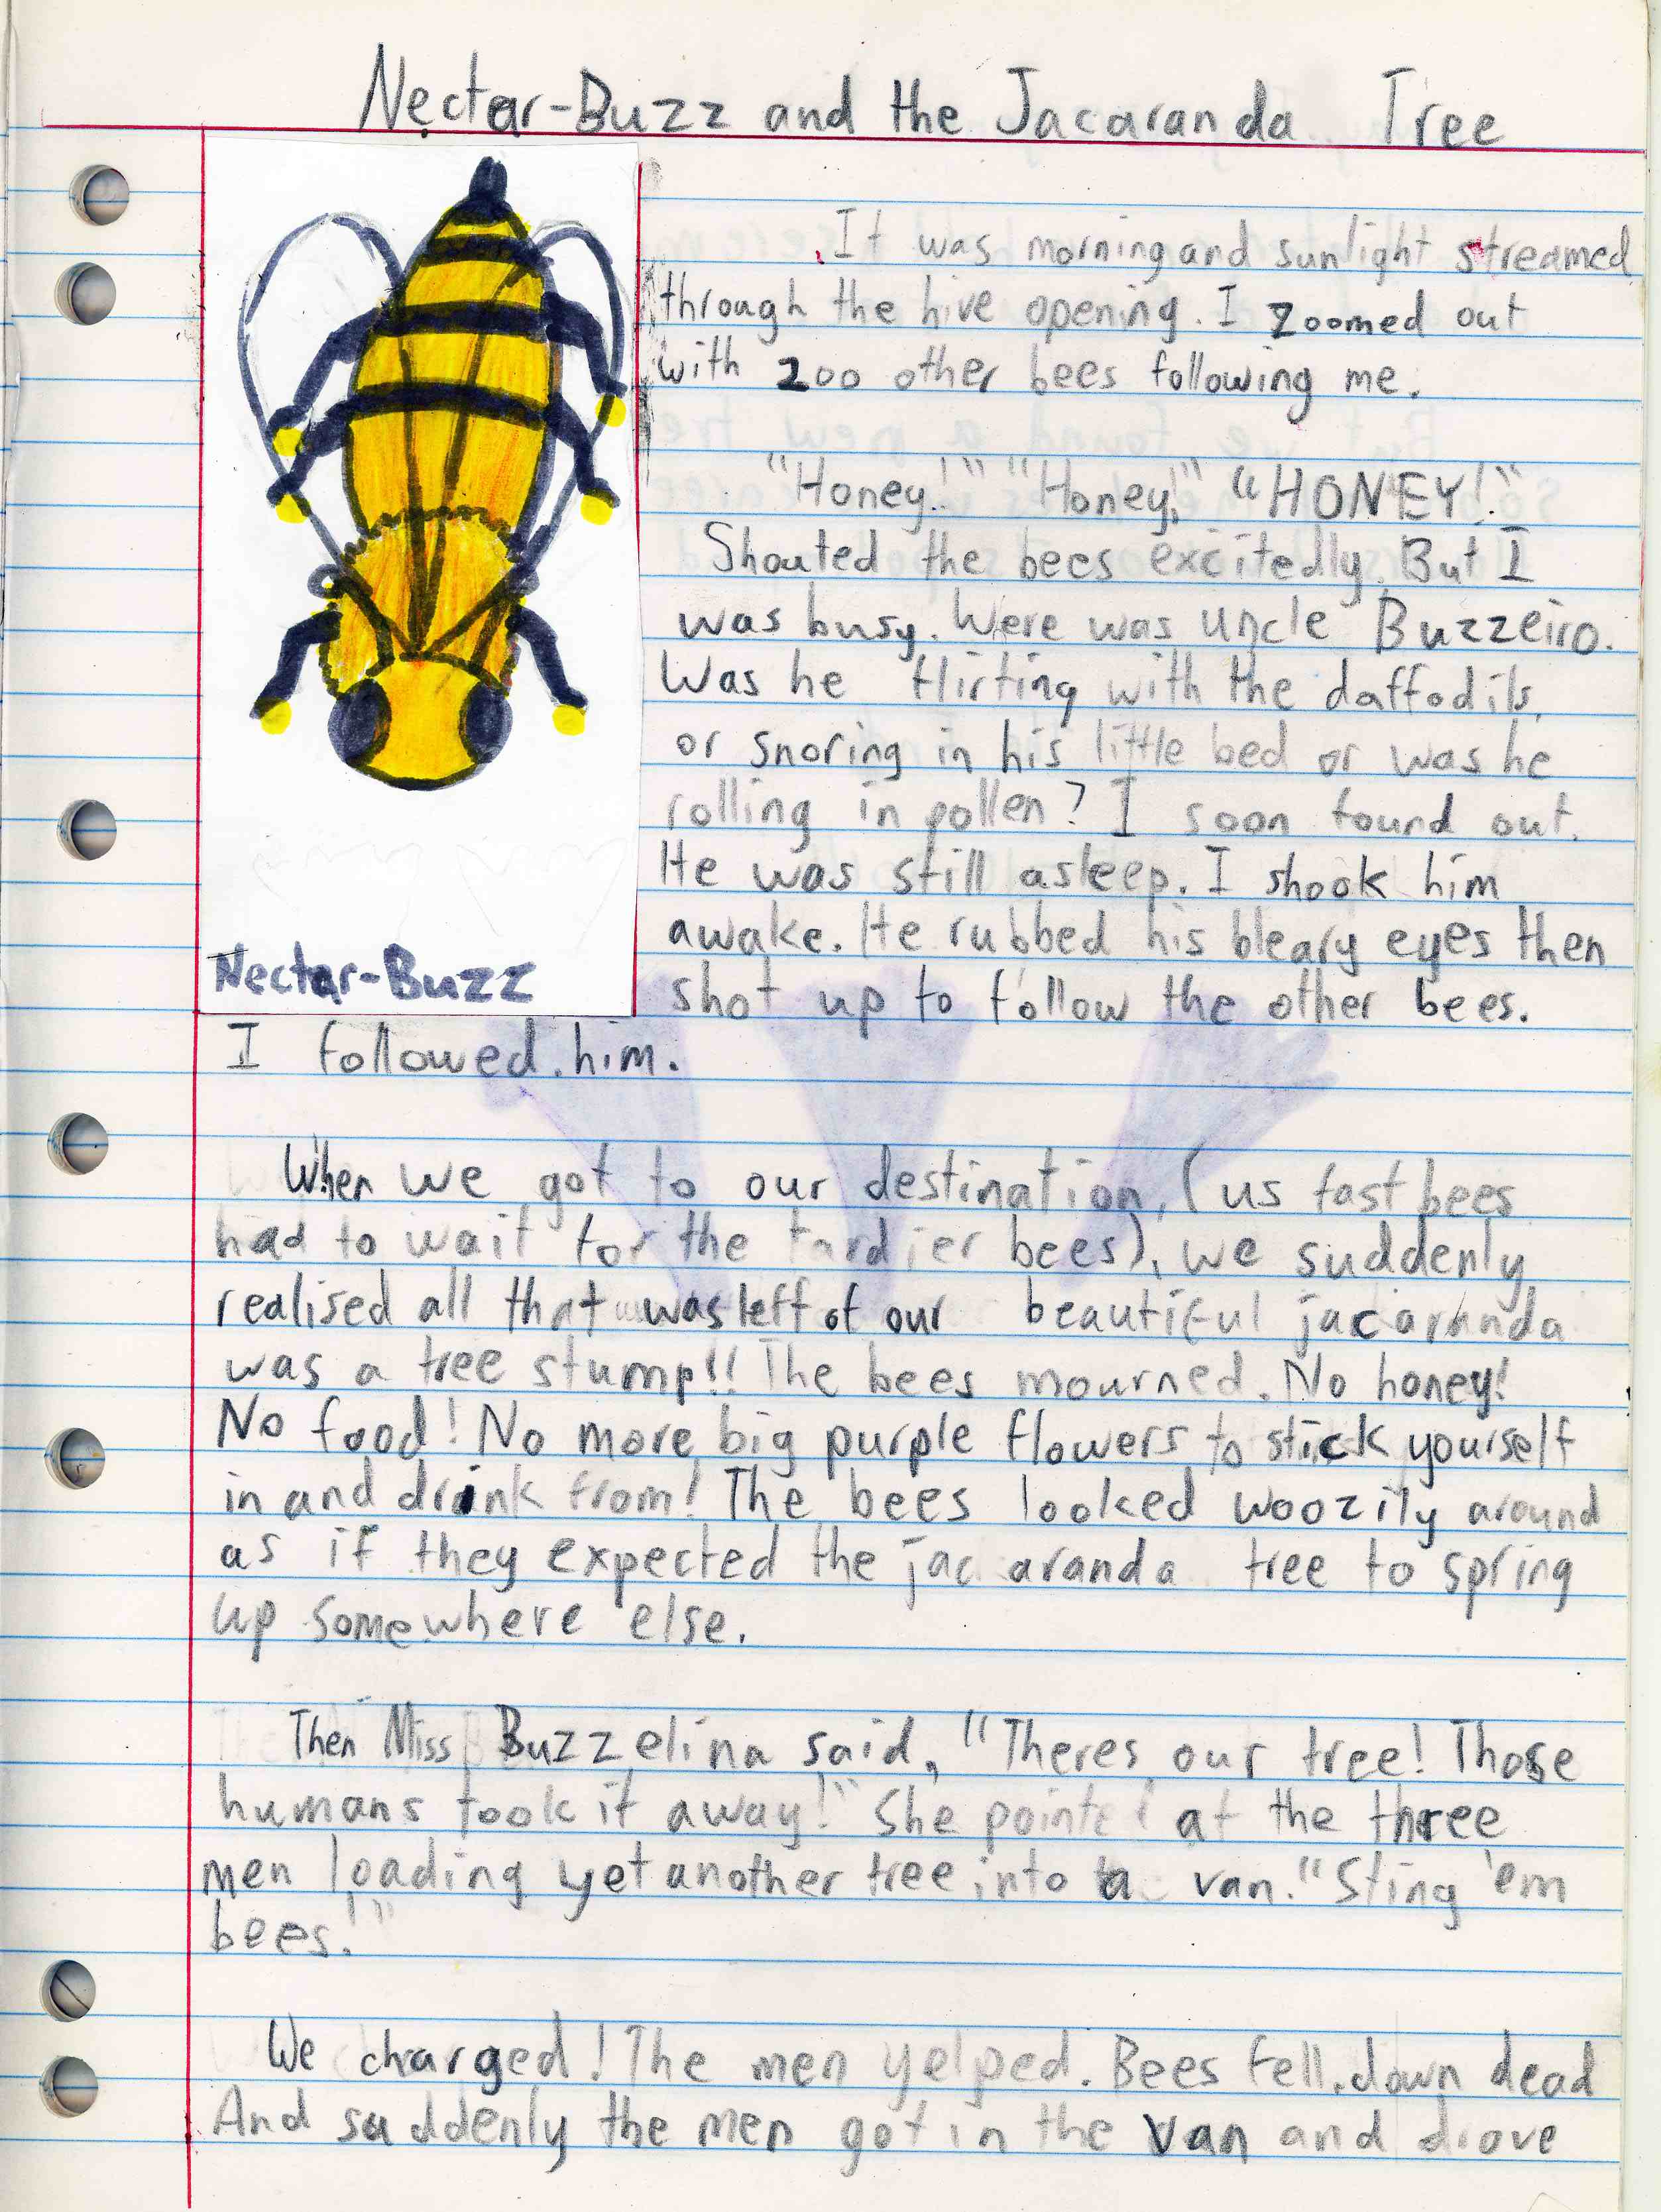 Nectar-Buzz and the Jacaranda Tree
It was morning and sunlight streamed
through the hive opening. I zoomed out
with 200 other bees following me.
"Honey!" "Honey!" "HONEY!"
Shouted the bees excitedly. But I
was busy. Were was Uncle Buzzeiro.
Was he flirting with the daffodils,
or snoring in his little bed or was he
rolling in pollen? I soon found out.
He was still asleep. I shook him
awake. He rubbed his bleary eyes then
shot up to follow the other bees.
Nectar-Buzz
I followed him.
When we got to our destination, (us fast bees
had to wait for the tardier bees), we suddenly
realised all that was left of our beautiful jacaranda
was a tree stump!! The bees mourned. No honey!
No food! No more big purple flowers to stick yourself
in and drink from! The bees looked woozily around
as if they expected the jacaranda tree to spring
up somewhere else.
Then Miss Buzzelina said, "Theres our tree! Those
humans took it away!" She pointed at the three
men loading yet another tree into a van. "Sting 'em
bees!"
We charged! The men yelped. Bees fell down dead
And suddenly the men got in the van and drove